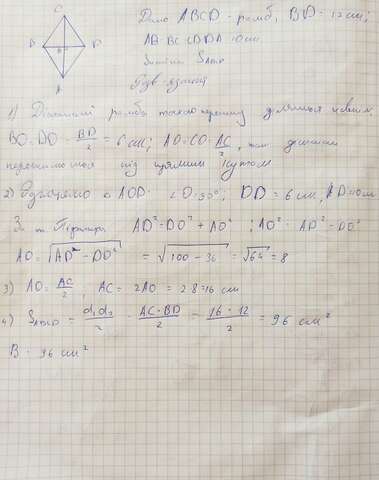 C
B D
A
Дано ABCD - ромб, BD = 12 см;
AB BC CD DA 10 см
Знайти SABCD
Розв'язання
1) Діагоналі ромба точкою перетину діляться навпіл.
BO = DO = BD/2 = 6 см; AO = CO = AC/2,
під прямим кутом
2) Розглянемо Δ AOD. ∠O = 90°; DO = 6 см, AD = 10 см
За т. Піфагора AD² = DO² + AO²; AO² = AD² - DO²
AO = √AD² - DO² = √100 - 36 = √64 = 8
3) AO = AC/2; AC = 2AO = 2·8 = 16 см
4) SABCD = d₁d₂/2 = AC·BD/2 = 16·12/2 = 96 см²
В. 96 см²